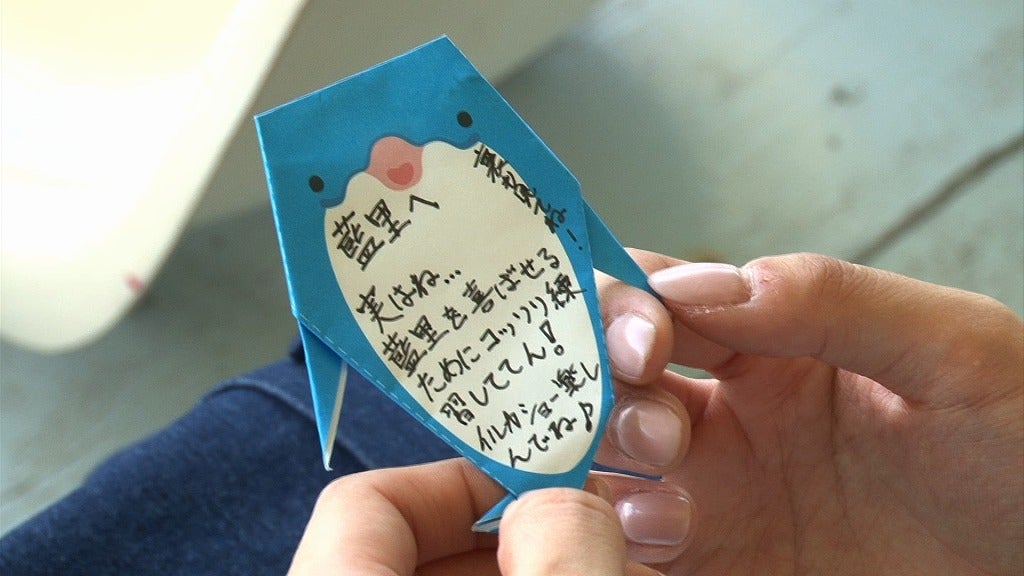 藍里へ
実はね…
藍里を喜ばせる
ためにコッソリ練
習しててん!
イルカショー楽し
んでね♪
裏も見てね!